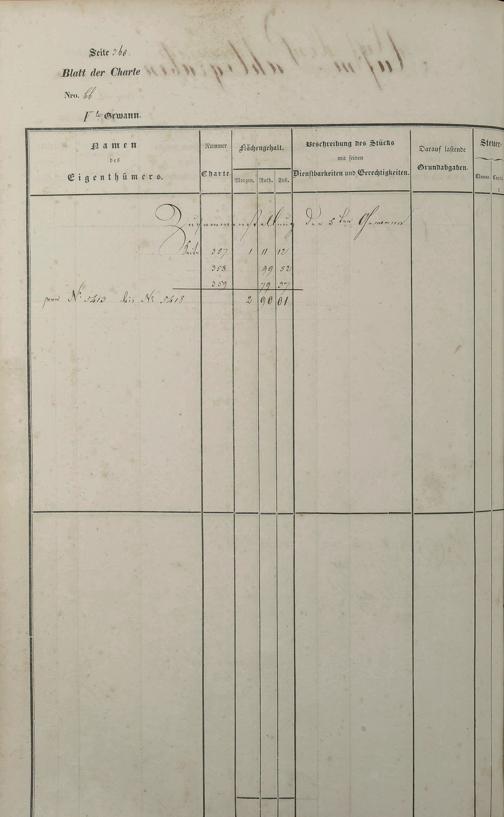 Seite 360
Blatt der Charte
Nro. 66
Vte Gewann.
Namen
des
Eigenthümers.
Nummer
Charte
Flächengehalt.
Morgen. Ruth. Sch.
Beschreibung des Stücks
mit seinen
Dienstbarkeiten und Gerechtigkeiten.
Darauf lastende
Grundabgaben.
Steuer-
Zusammenstellung der 5ten Gewann
Seite 357 1 11 12
358 99 52
359 79 37
von No 5413 bis No 5418 2 90 01